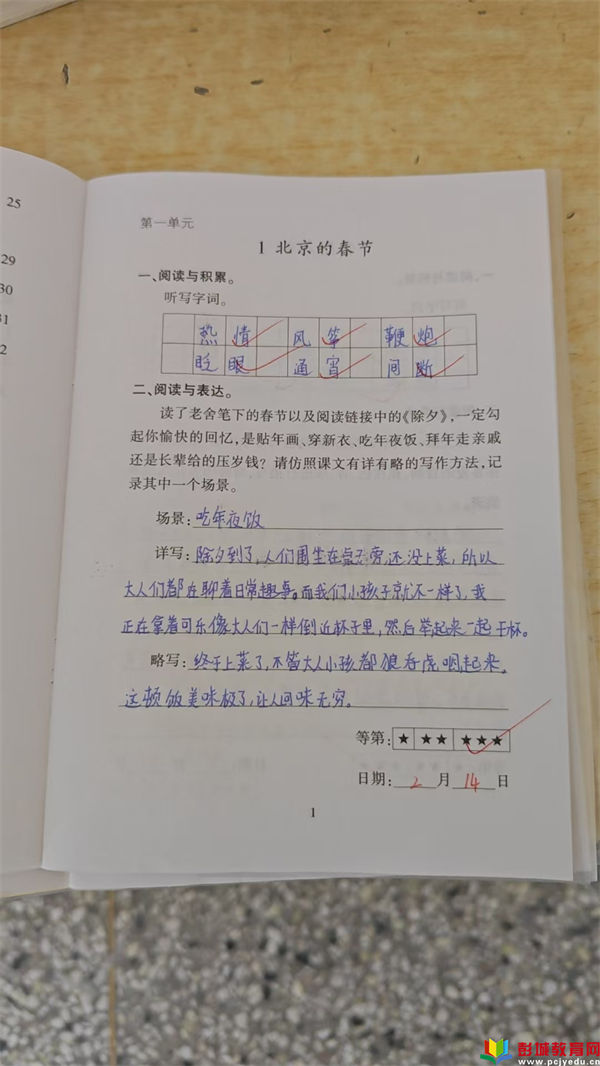 25
29
30
31
2
第一单元
1 北京的春节
一、阅读与积累。
听写字词。
热情 风筝 鞭炮
眨眼 通宵 间断
二、阅读与表达。
读了老舍笔下的春节以及阅读链接中的《除夕》,一定勾
起你愉快的回忆,是贴年画、穿新衣、吃年夜饭、拜年走亲戚
还是长辈给的压岁钱？请仿照课文有详有略的写作方法,记
录其中一个场景。
场景:吃年夜饭
详写:除夕到了,人们围坐在桌旁,还没上菜,所以
大人们都在聊着日常趣事。而我们小孩子就不一样了,我
正在拿着可乐像大人们一样倒近杯子里,然后举起来一起干杯。
略写:终于上菜了,不管大人小孩都狼吞虎咽起来。
这顿饭美味极了,让人回味无穷。
等第:★ ★★ ★★★
日期:2月14日
1
彭城教育网
www.pcjyedu.cn